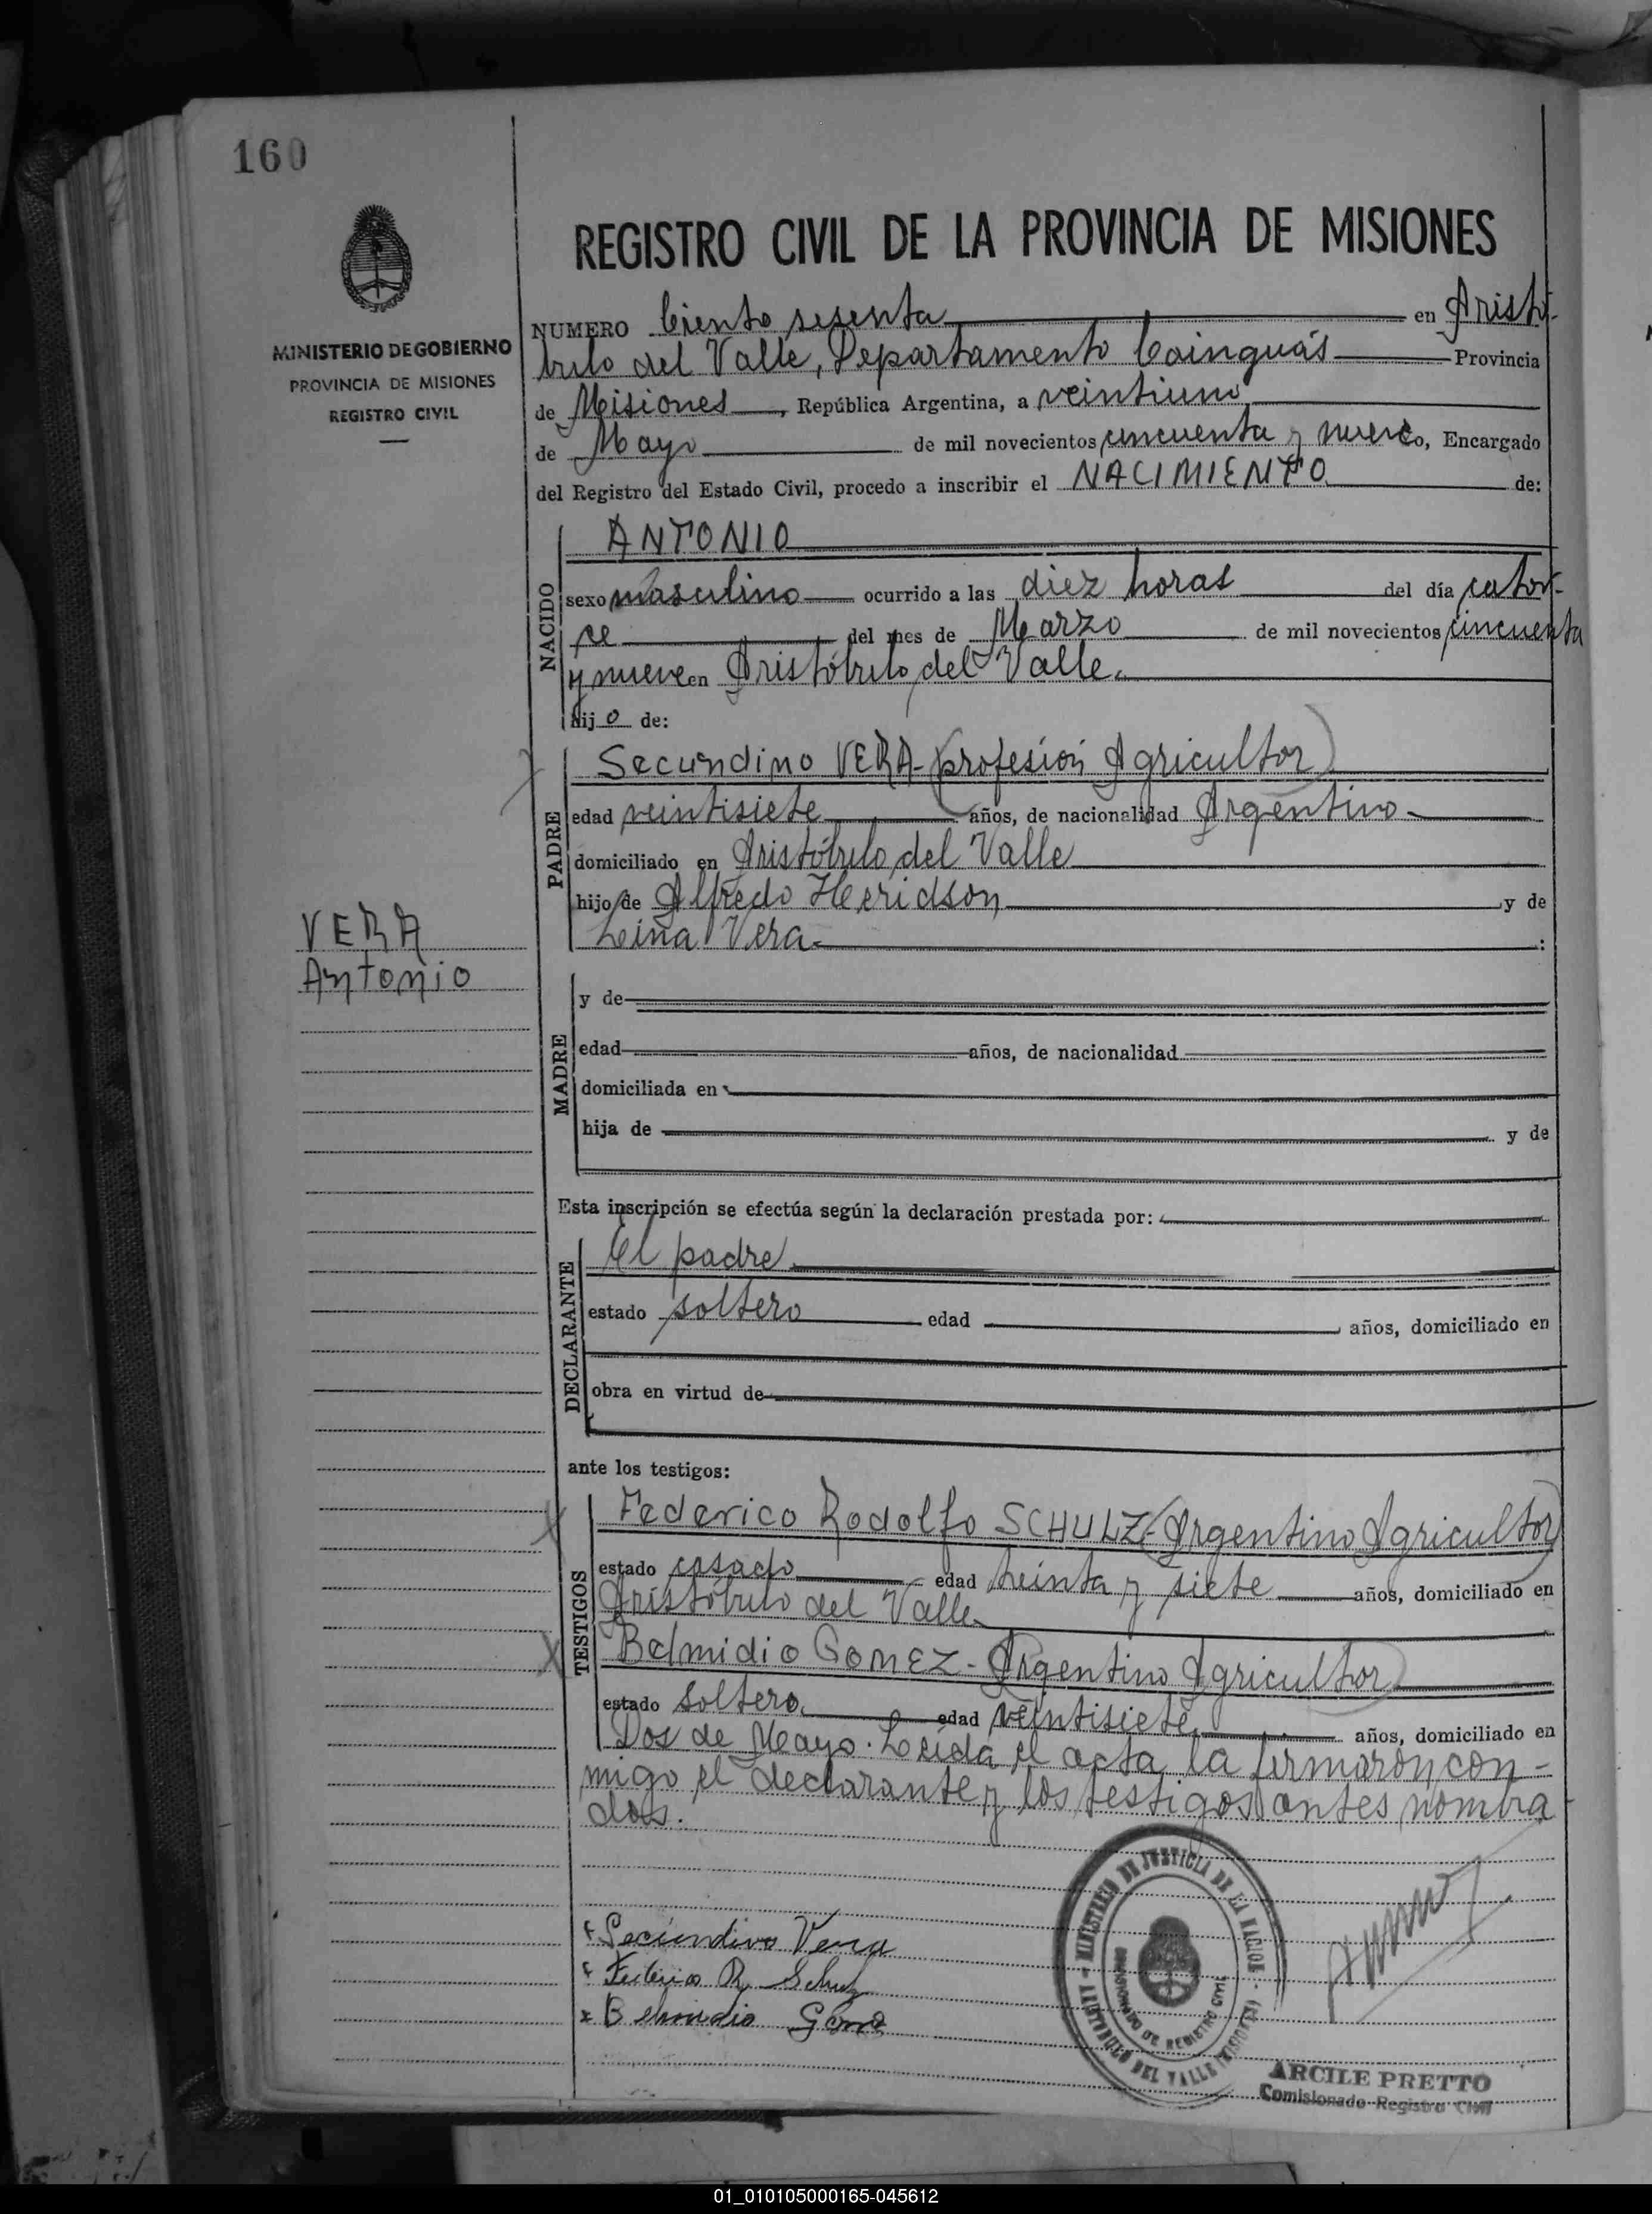 160
MINISTERIO DE GOBIERNO
PROVINCIA DE MISIONES
REGISTRO CIVIL
REGISTRO CIVIL DE LA PROVINCIA DE MISIONES
NUMERO Ciento sesenta en Aristó-
bulo del Valle, Departamento Cainguás Provincia
de Misiones, República Argentina, a veintiuno
de Mayo de mil novecientos cincuenta y nueve, Encargado
del Registro del Estado Civil, procedo a inscribir el NACIMIENTO de:
NACIDO
ANTONIO
sexo masculino ocurrido a las diez horas del día cator-
ce del mes de Marzo de mil novecientos cincuenta
y nueve en Aristóbulo del Valle.
hijo de:
PADRE
Secundino VERA - (profesión Agricultor)
edad veintisiete años, de nacionalidad Argentino
domiciliado en Aristóbulo del Valle
hijo de Alfredo Heridson y de
Vera :
VERA
Antonio
MADRE
y de
edad años, de nacionalidad
domiciliada en
hija de y de
Esta inscripción se efectúa según la declaración prestada por:
DECLARANTE
El padre
estado soltero edad años, domiciliado en
obra en virtud de
ante los testigos:
TESTIGOS
Federico Rodolfo SCHULZ - (Argentino Agricultor)
estado casado edad treinta y siete años, domiciliado en
Aristóbulo del Valle
Belmidio GOMEZ - (Argentino Agricultor)
estado soltero edad veintisiete años, domiciliado en
Dos de Mayo. Leída el acta, la firmaron con-
migo el declarante y los testigos antes nombra
dos.
Secundino Vera
Federico R. Schulz
Belmidio Gomez
MINISTERIO DE JUSTICIA DE LA NACION
ARISTOBULO DEL VALLE (MISIONES)
ARCILE PRETTO
Comisionado Registro Civil
01_010105000165-045612